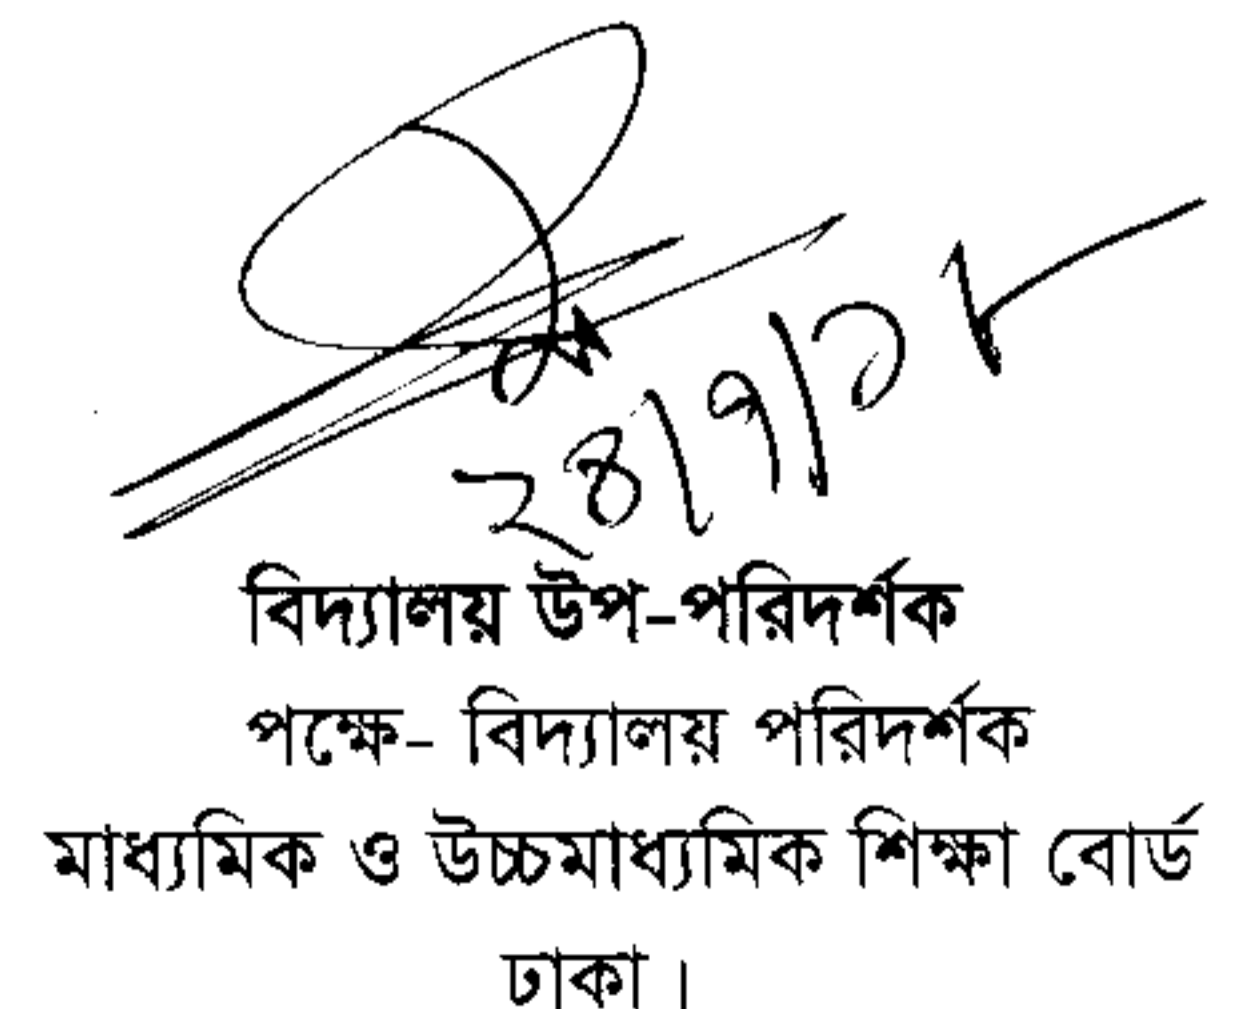 ২৪/৭/০৮
বিদ্যালয় উপ-পরিদর্শক
পক্ষে- বিদ্যালয় পরিদর্শক
মাধ্যমিক ও উচ্চমাধ্যমিক শিক্ষা বোর্ড
ঢাকা।